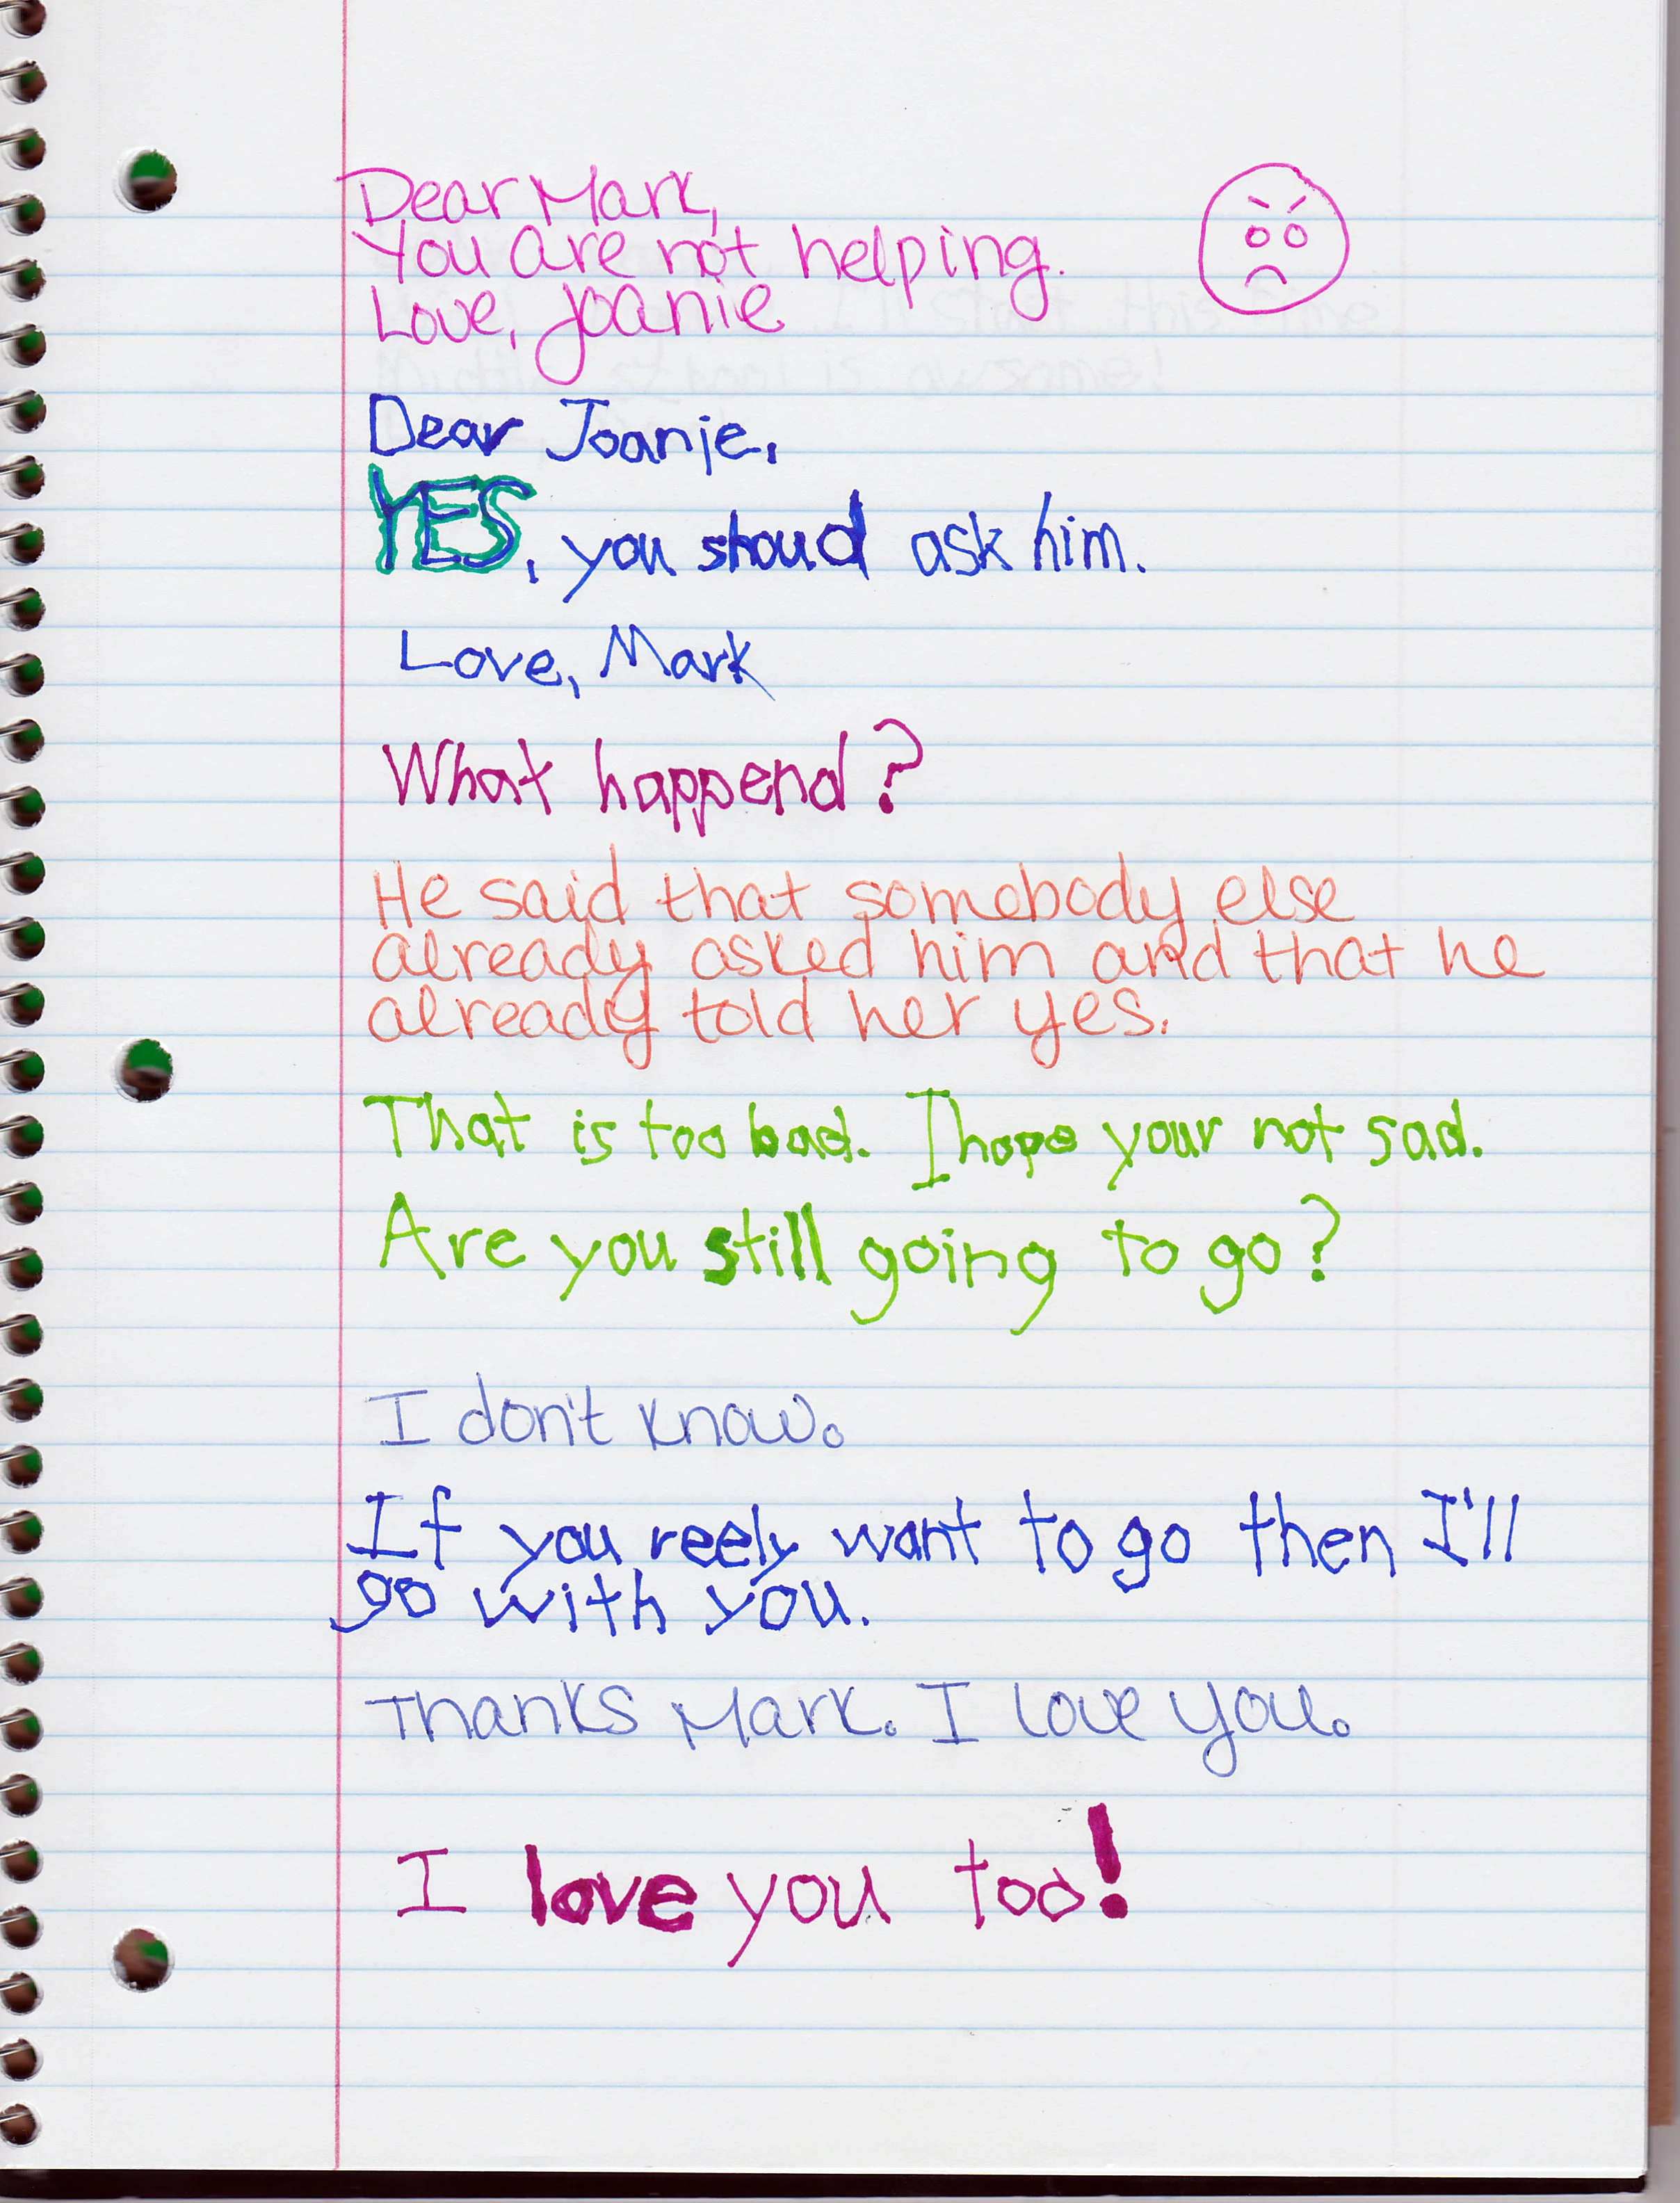 Dear Mark,
You are not helping.
Love, Joanie
Dear Joanie,
YES, you shoud ask him.
Love, Mark
What happend?
He said that somebody else
already asked him and that he
already told her yes.
That is too bad. I hope your not sad.
Are you still going to go?
I don't know.
If you reely want to go then I'll
go with you.
Thanks Mark. I love you.
I love you too!